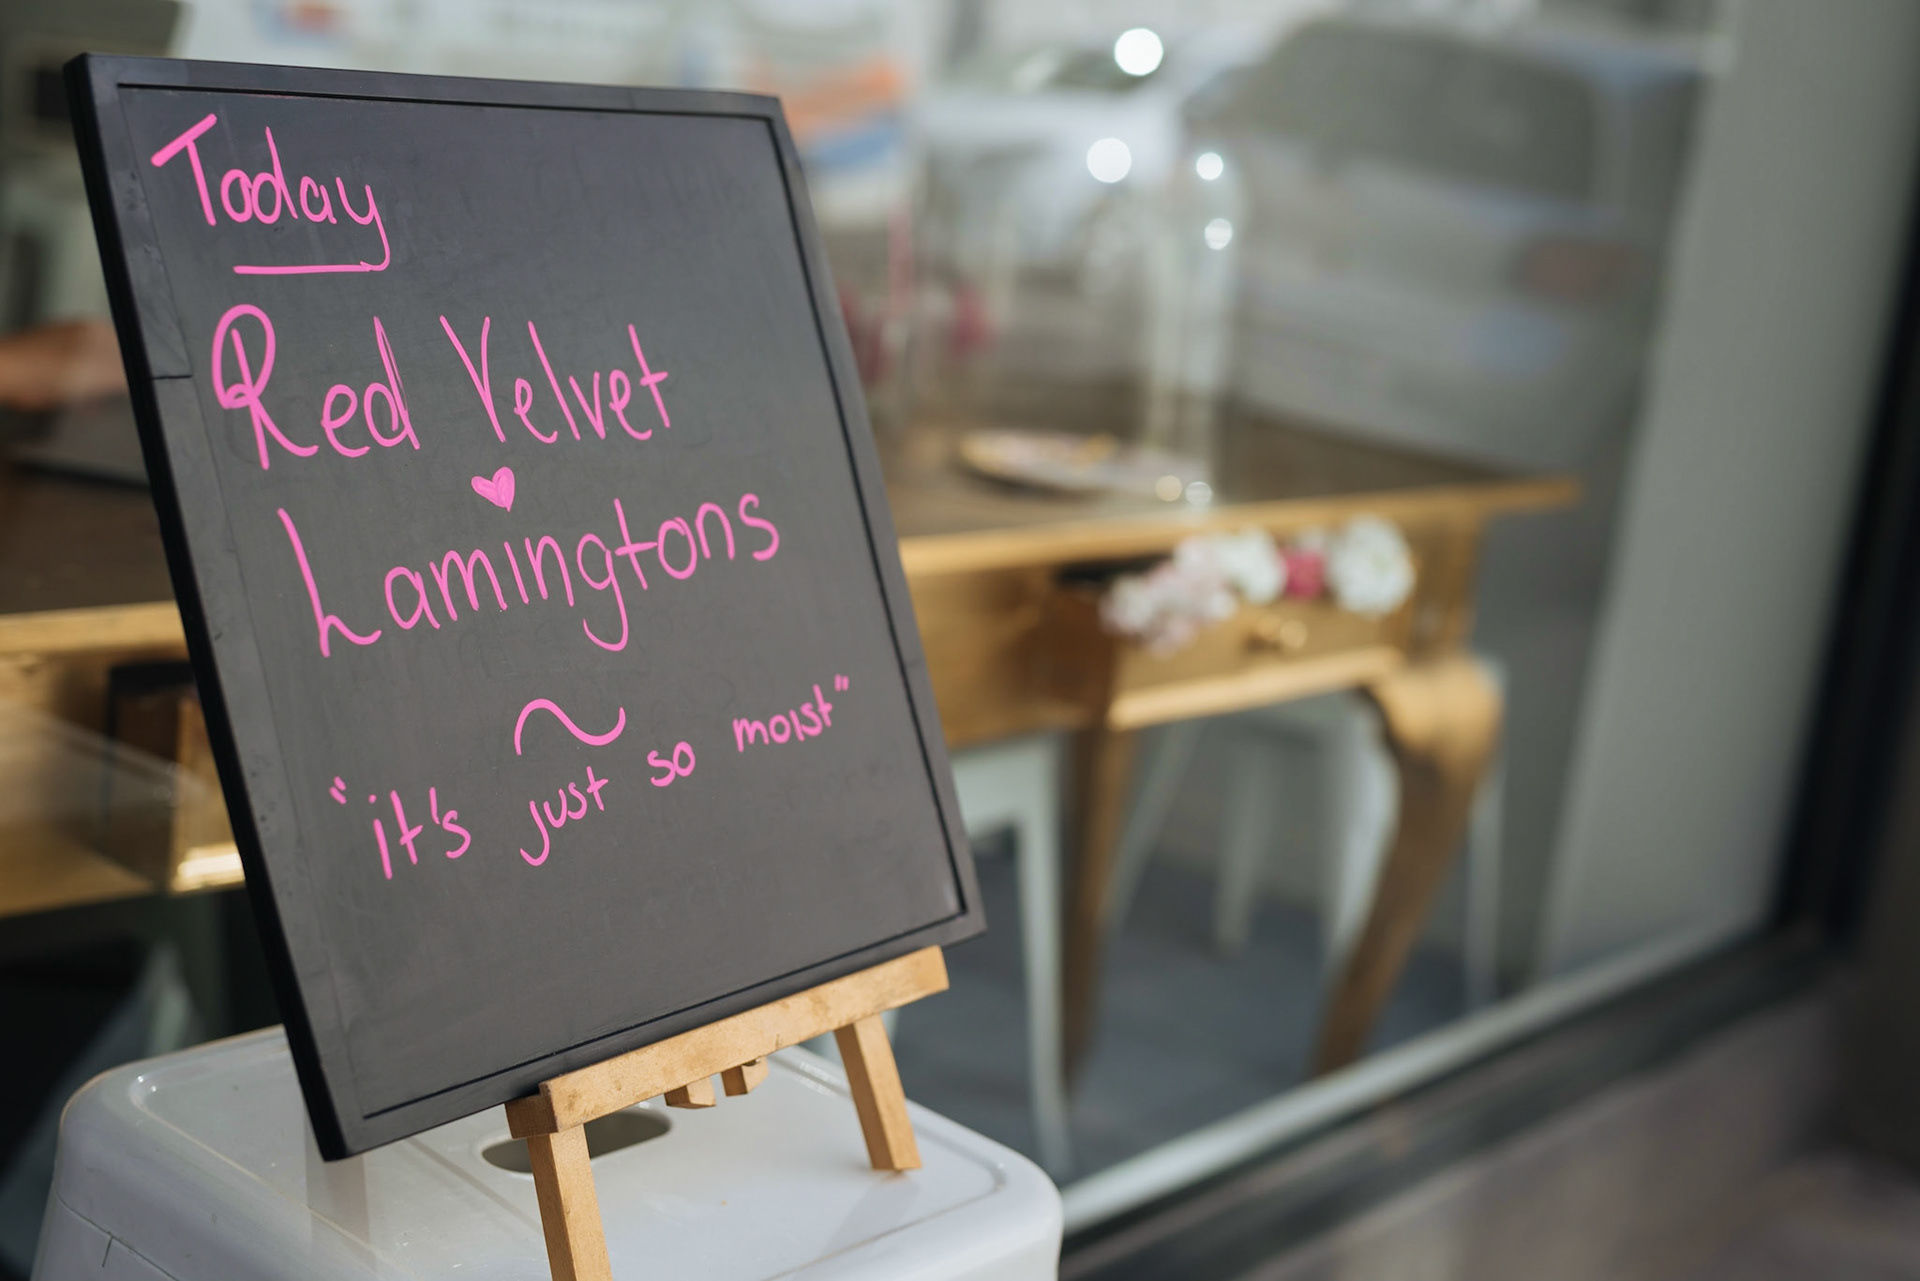 Today
Red Velvet
Lamingtons
"it's just so moist"